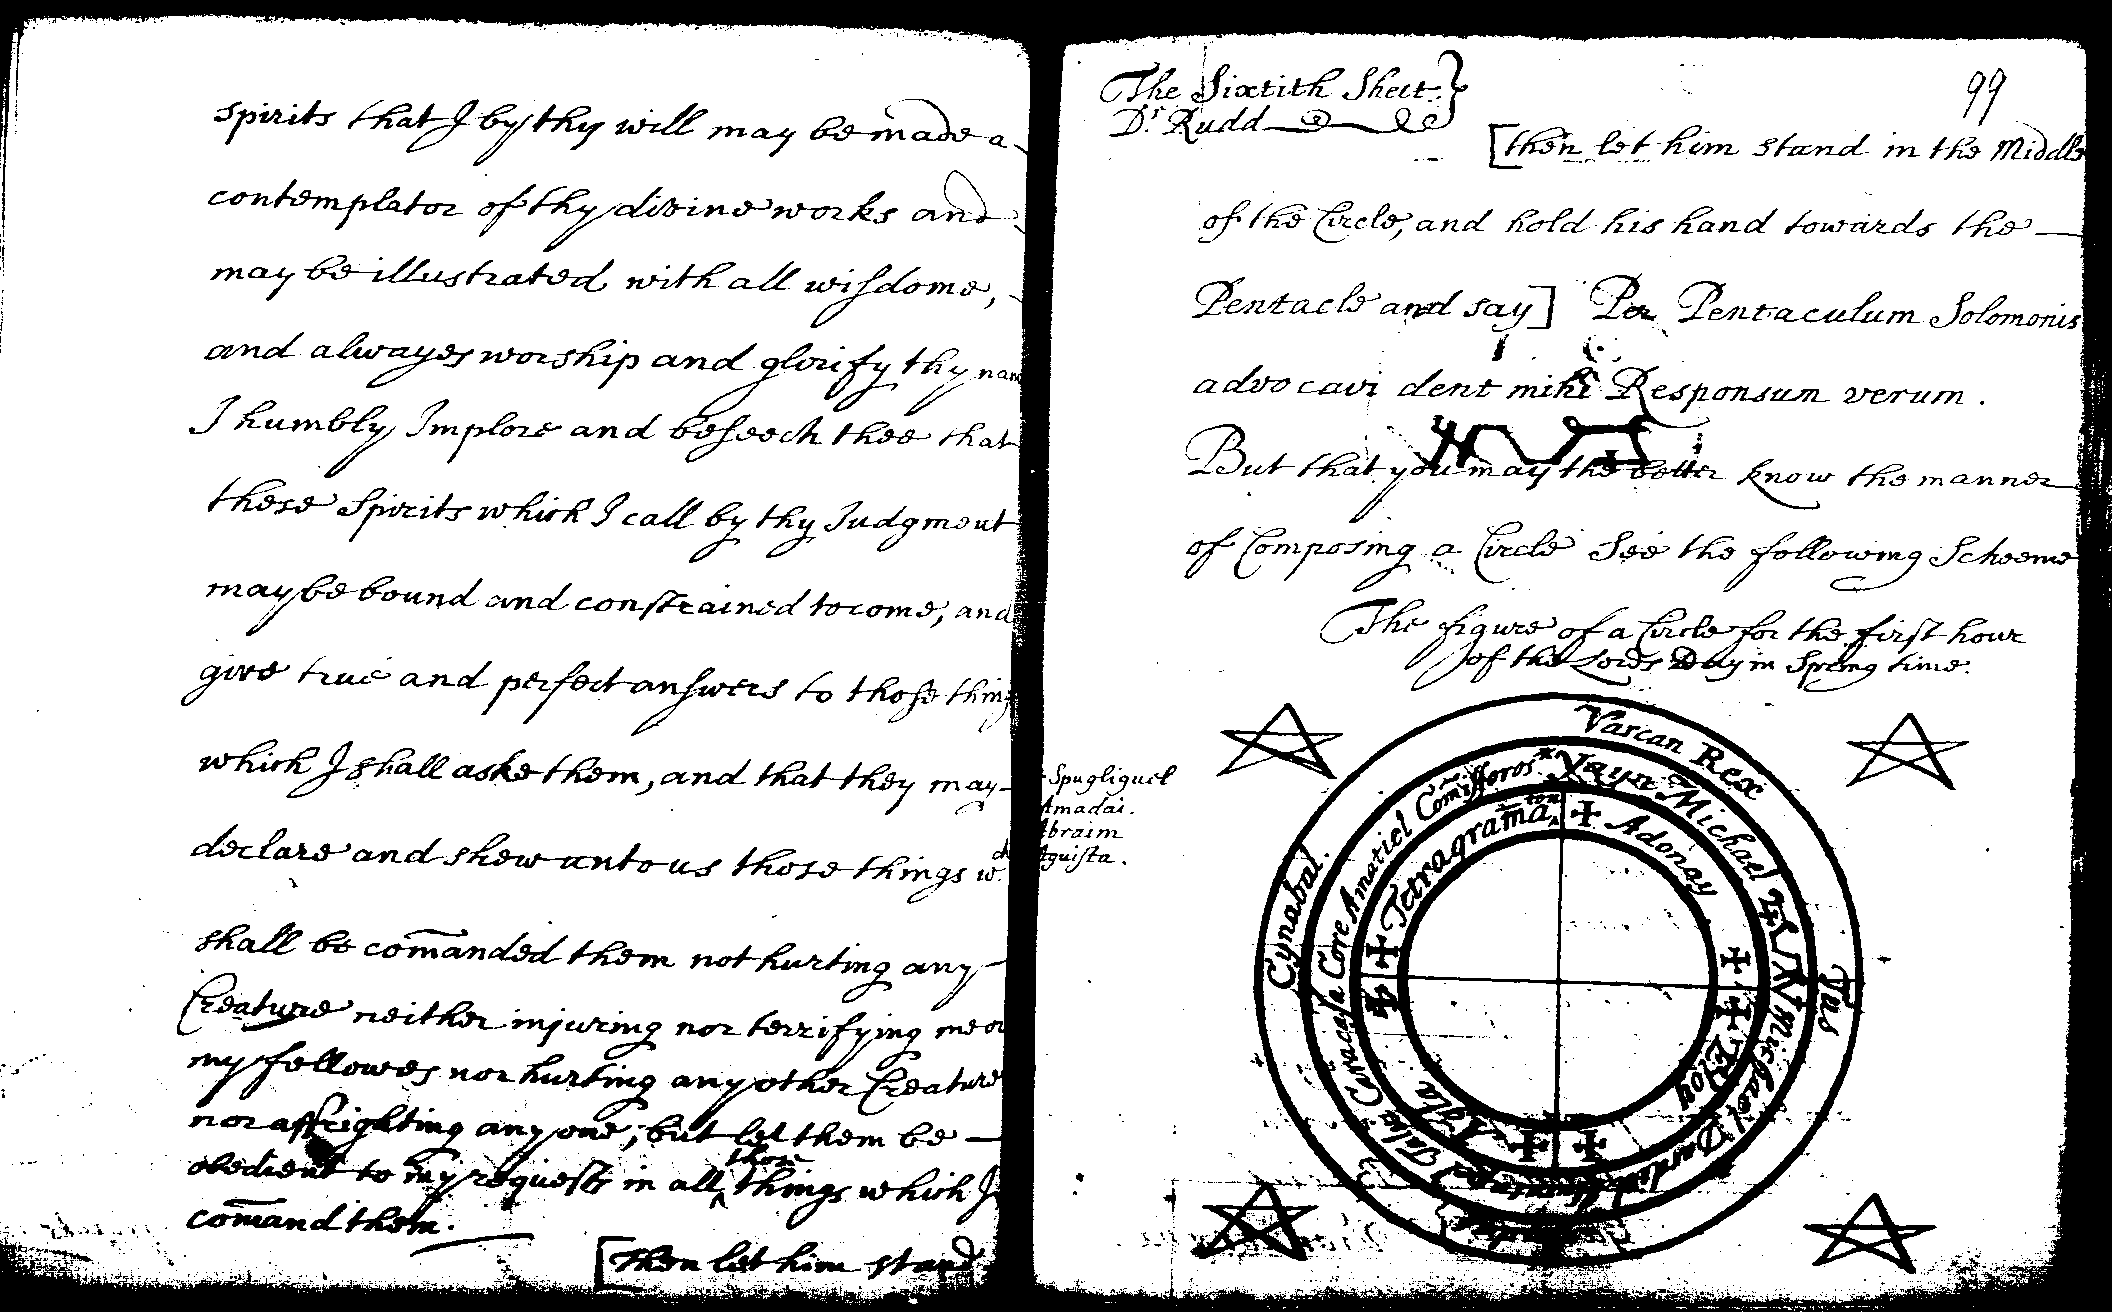 spirits that I by thy will may be made a
contemplator of thy divine works and
may be illustrated with all wisdome,
and alwayes worship and glorify thy nam
I humbly Implore and beseech thee that
these Spirits which I call by thy Judgment
may be bound and constrained to come, and
give true and perfect answers to those things
which I shall aske them, and that they may
declare and shew unto us those things wch
shall be com̄anded them not hurting any
Creature neither injuring nor terrifying me or
my fellowes nor hurting any other Creature
nor affrighting any one, but let them be
obedient to my requests in all those things which I
com̄and them.
[then let him stand
The Sixtith Sheet
Dr. Rudd
99
[then let him stand in the Middle
of the Circle, and hold his hand towards the
Pentacle and say] Per Pentaculum Solomonis
advocavi dent mihi Responsum verum.
But that you may the better know the manner
of Composing a Circle See the following Scheeme
The figure of a Circle for the first hour
of the Lords Day in Spring time.
Spugliguel
Amadai.
Abraim
Aguista.
Varcan Rex
Tus
Cynabal.
Yayn Michael
Michael Dardiel
Tal
Caracasa Core Amatiel Com̄issoros
Tetragram̄aton
Adonay
Eloy
Agla